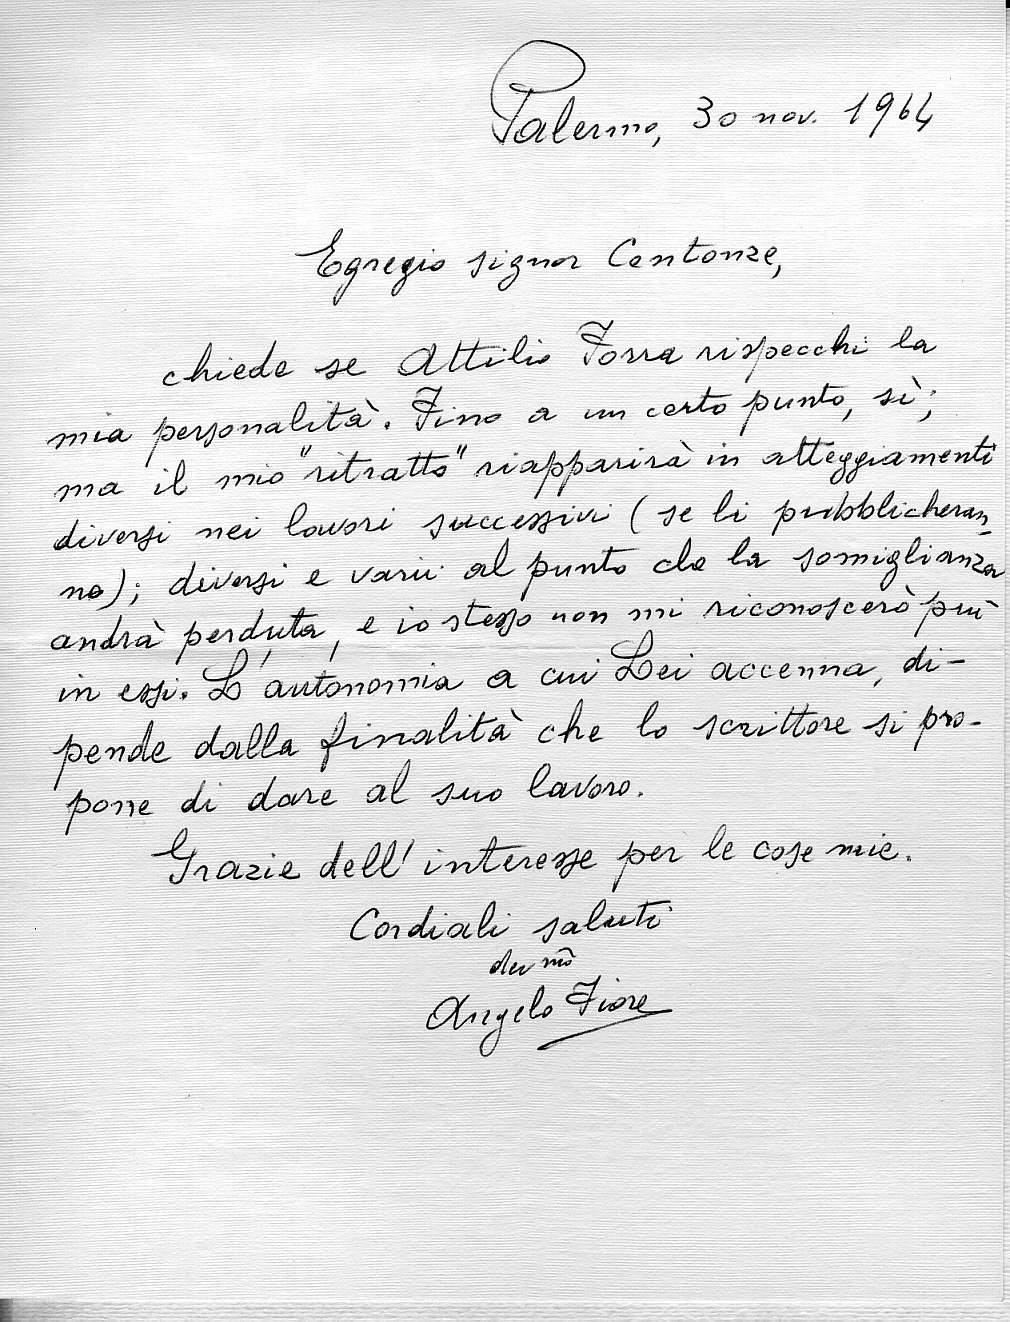 Palermo, 30 nov. 1964
Egregio signor Centonze,
chiede se Attilio Forra rispecchi la
mia personalità. Fino a un certo punto, sì;
ma il mio "ritratto" riapparirà in atteggiamenti
diversi nei lavori successivi (se li pubblicheran-
no); diversi e varii al punto che la somiglianza
andrà perduta, e io stesso non mi riconoscerò più
in essi. L'autonomia a cui Lei accenna, di-
pende dalla finalità che lo scrittore si pro-
pone di dare al suo lavoro.
Grazie dell'interesse per le cose mie.
Cordiali saluti
dev mo
Angelo Fiore